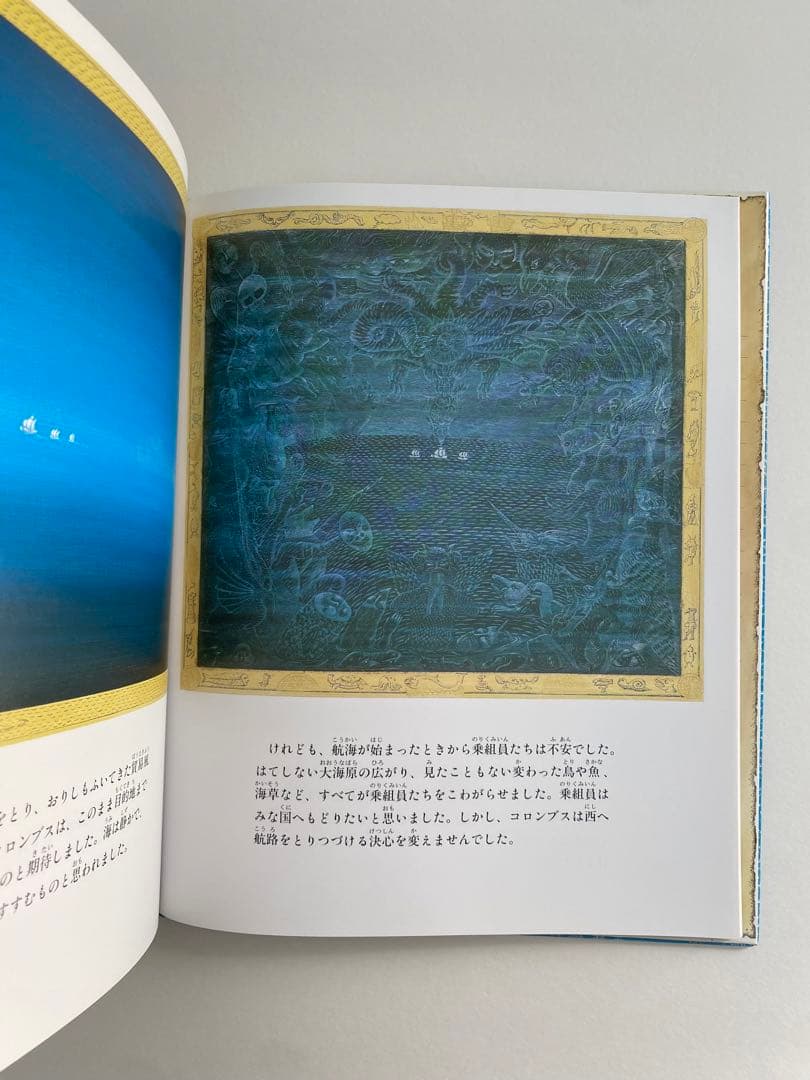 をとり、おりしもふいてきた貿易風
ロンブスは、このまま目的地まで
のと期待しました。海は静かで、
すすむものと思われました。
けれども、航海が始まったときから乗組員たちは不安でした。
はてしない大海原の広がり、見たこともない変わった鳥や魚、
海草など、すべてが乗組員たちをこわがらせました。乗組員は
みな国へもどりたいと思いました。しかし、コロンブスは西へ
航路をとりつづける決心を変えませんでした。